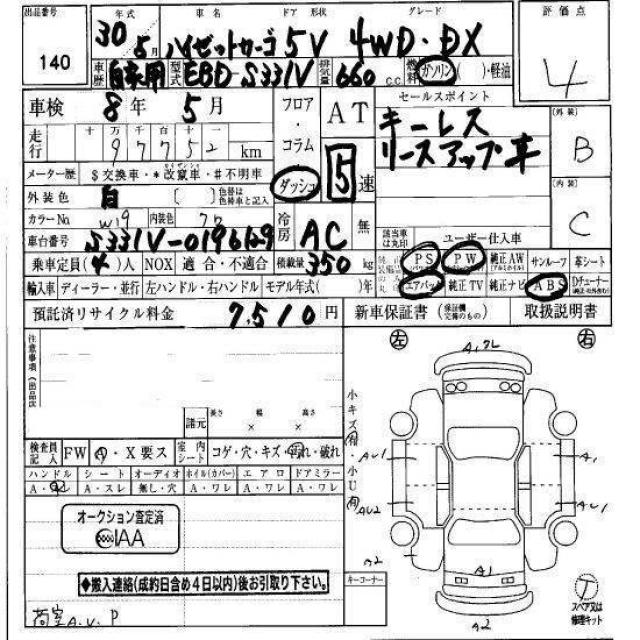 出品番号 年式 車名 ドア 形状 グレード 評価点
140 30年 5月 ハイゼットカーゴ 5V 4WD・DX 4
車歴 自家用 型式 EBD-S331V 排気量 660 cc 燃料 ガソリン( )・軽油
車検 8年 5月 フロア・コラム ダッシュ AT 5速 セールスポイント
キーレス
リースアップ車
(外装) B
(内装) C
走行 十万千百十一
97752 km
メーター歴 $交換車・*改竄車・#不明車
外装色 白 [ ]色替は色替車と記入
カラーNo W19 内装色 冷房 AC 無 該当車は丸印 ユーザー仕入車
車台番号 S331V-0196129
PS PW 純正AW サンルーフ 革シート
乗車定員(4)人 NOX 適合・不適合 積載量 350 kg
エアバッグ 純正TV 純正ナビ ABS Dチューナー
輸入車 ディーラー・並行 左ハンドル・右ハンドル モデル年式( )年
預託済リサイクル料金 7,510円 新車保証書(保証機交換のもの) 取扱説明書
注意事項(出品店
左 右
諸元 長さ 幅 高さ
× ×
小キズ有・小U有
検査員記入 FW A・X要ス 室内シート コゲ・穴・キズ・汚れ・破れ
ハンドル シート オーディオ ホイル(カバー) エアロ ドアミラー
A・スレ A・スレ 無し・穴 A・ワレ A・ワレ A・ワレ
オークション査定済
JAA
◆搬入連絡(成約日含め4日以内)後お引取り下さい。
荷室A.U.P
キーコーナー
A,ワレ
AU1 A1
AU2 AU1
A2 A1
A2
T
スペア又は修理キット